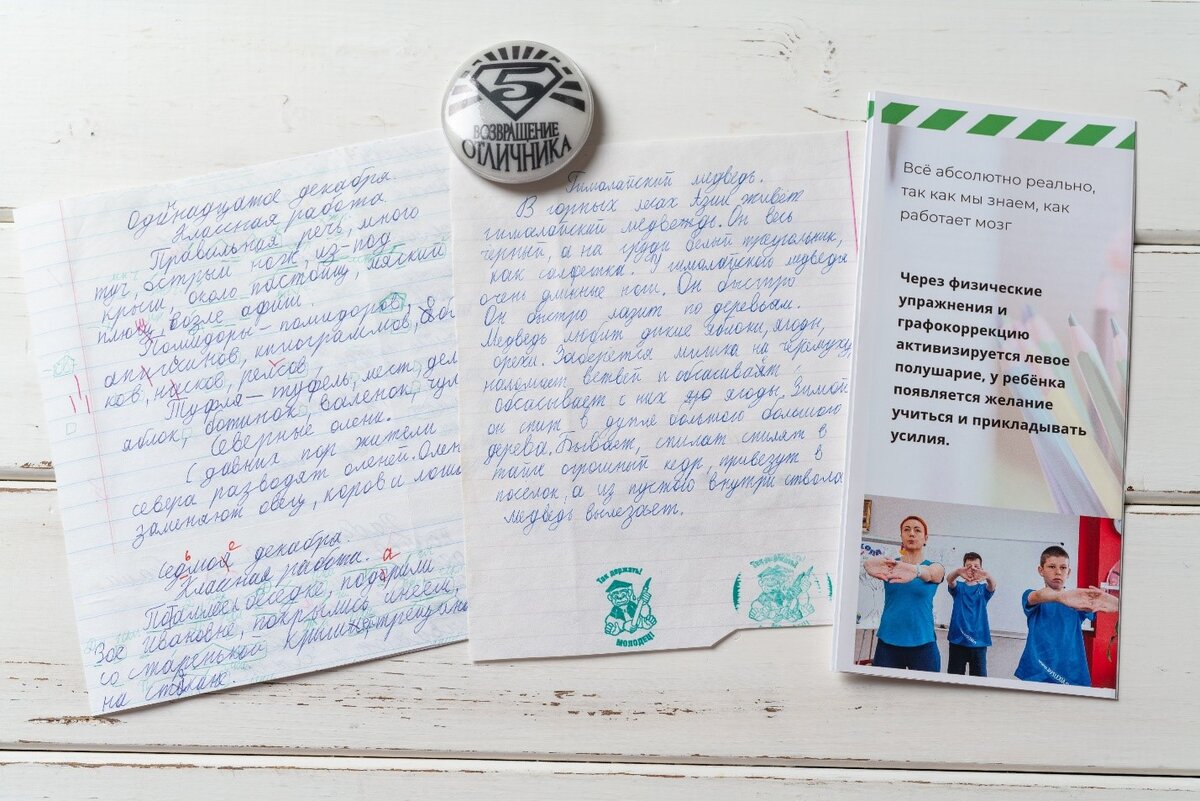 5
ВОЗВРАЩЕНИЕ
ОТЛИЧНИКА
Одиннадцатое декабря.
Классная работа.
Правильная речь, много
туч, острый нож, из-под
крыш, около пастбищ, мягкий
плющ, возле афиш.
Помидоры-помидоров,
апельсинов, килограммов,
ков, носков, рельсов,
Туфля-туфель, мест, дел
яблок, ботинок, валенок, чул
Северные олени.
С давних пор жители
севера разводят оленей. Олен
заменяют овец, коров и лоша
Седмое декабря.
ь с
Класная работа.
а
соседке, подарили
Зое Ивановне, покрылись инеем,
со старенькой крыши, трещана
на
Гималайский медведь.
В горных лесах Азии живёт
гималайский медвеждь. Он весь
чёрный, а на груди белый треугольник,
как салфетка. У гималайского медведя
очень длинные ноги. Он быстро
Он быстро лазит по деревьям.
Медведь любит дикие яблоки, ягоды,
орехи. Заберётся мишка на черёмуху,
наломает ветвей и обсасывает
обсасывает с них ягоды. Зимой
он спит в дупле большого большого
дерева. Бывает, спилят спилят в
тайге огромный кедр, привезут в
поселок, а из пустого внутри ствола
медведь вылезает.
Так держать!
МОЛОДЕЦ!
Так держать!
Всё абсолютно реально,
так как мы знаем, как
работает мозг
Через физические
упражнения и
графокоррекцию
активизируется левое
полушарие, у ребёнка
появляется желание
учиться и прикладывать
усилия.